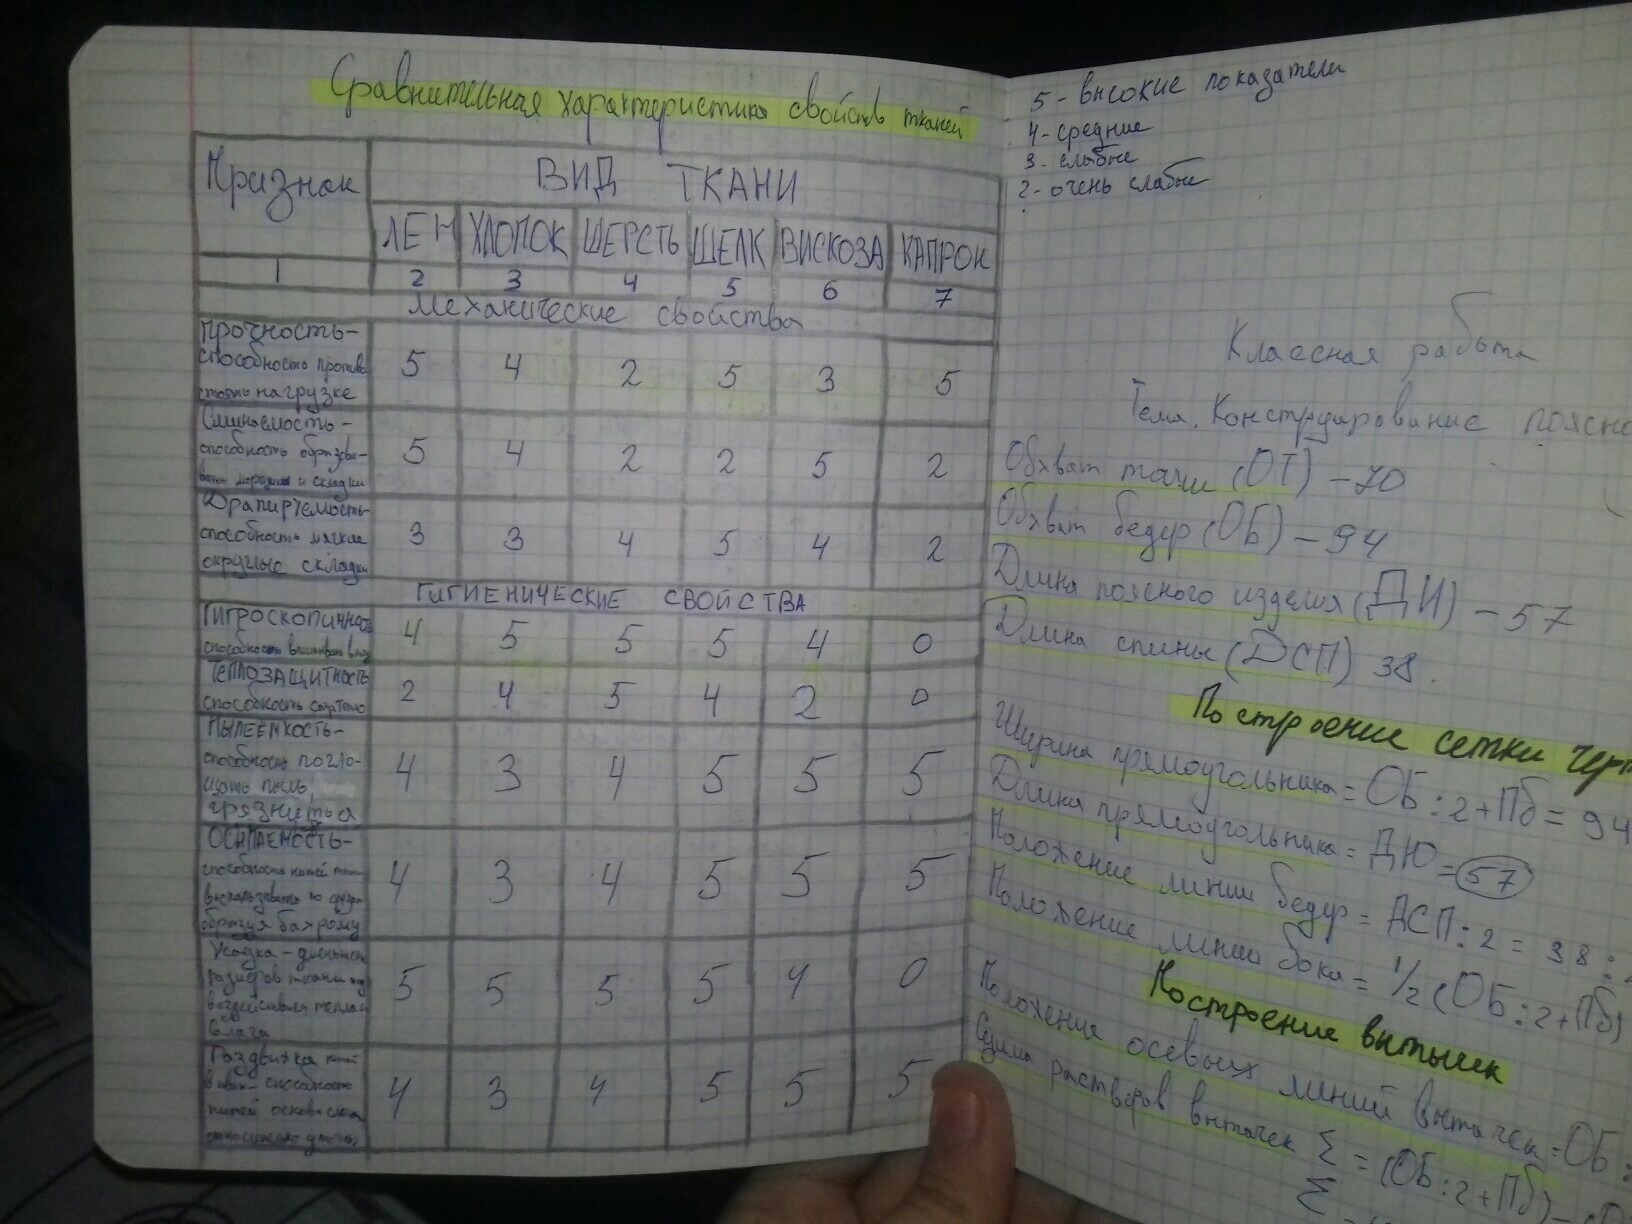 Сравнительная характеристика свойств тканей
Признак
ВИД ТКАНИ
ЛЕН ХЛОПОК ШЕРСТЬ ШЕЛК ВИСКОЗА КАПРОН
1 2 3 4 5 6 7
Механические свойства
Прочность-
способность противо
стоять нагрузке
5 4 2 5 3 5
Сминаемость-
способность образовы-
вать морщины и складки
5 4 2 2 5 2
Драпируемость-
способность мягкие
округлые складки
3 3 4 5 4 2
ГИГИЕНИЧЕСКИЕ СВОЙСТВА
Гигроскопичность
способность впитывать влагу
4 5 5 5 4 0
ТЕПЛОЗАЩИТНОСТЬ
способность
2 4 5 4 2 0
ПЫЛЕЕМКОСТЬ-
способность погло-
щать пыль,
грязниться
4 3 4 5 5 5
ОСЫПАЕМОСТЬ-
способность нитей
выскальзывать
образуя бахрому
4 3 4 5 5 5
Усадка -
размеров ткани под
тепла и
влаги
5 5 5 5 4 0
Раздвижка нитей
в швах- способность
нитей основы
4 3 4 5 5 5
5 - высокие показатели
4 - средние
3 - слабые
2 - очень слабые
Классная работа
Тема. Конструирование поясно
Обхват талии (ОТ) - 70
Обхват бедер (ОБ) - 94
Длина поясного изделия (ДИ) - 57
Длина спины (ДСП) 38.
Построение сетки черт
Ширина прямоугольника = ОБ : 2 + Пб = 94
Длина прямоугольника = ДЮ = 57
Положение линии бедер = ДСП : 2 = 38 :
Положение линии бока = 1/2 (ОБ : 2 + Пб)
Построение вытычек
Положение осевых линий вытачек = ОБ :
Сумма растворов вытачек Σ = (ОБ : 2 + Пб) -
Σ =